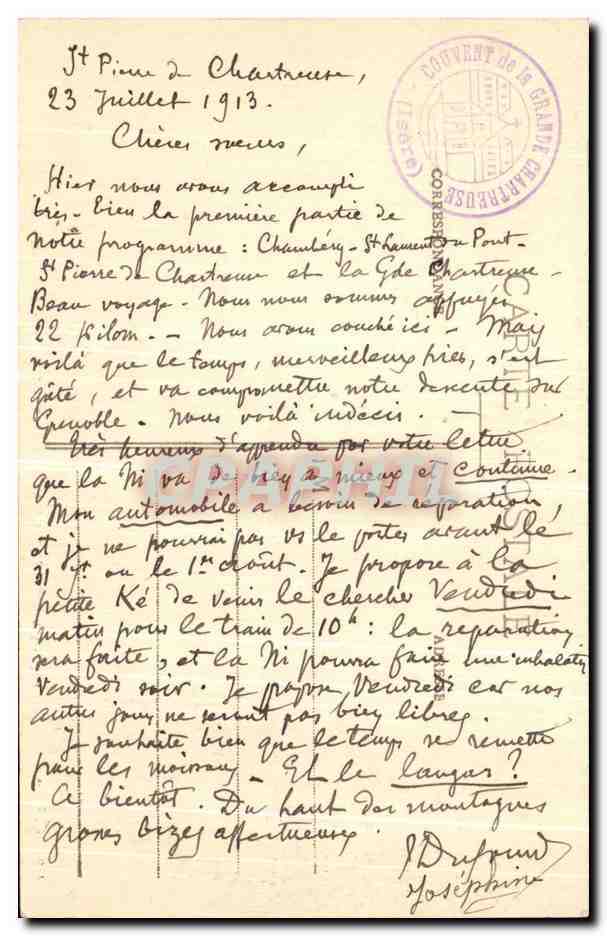 St Pierre de Chartreuse,
23 Juillet 1913.
COUVENT de la GRANDE CHARTREUSE (Isère)
Chères sœurs,
Hier nous avons accompli
très-bien la première partie de
notre programme : Chambéry - St Laurent du Pont -
St Pierre de Chartreuse et la Gde Chartreuse -
Beau voyage - Nous nous sommes appuyés
22 kilom. - Nous avons couché ici - Mais
voilà que le temps, merveilleux hier, s'est
gâté, et va compromettre notre descente sur
Grenoble - Nous voilà indécis. -
Très heureux d'apprendre par votre lettre
que la Ni va de bien en mieux et continue.
Mon automobile a besoin de réparation,
et je ne pourrai pas vs le portes avant le
31 ou le 1er août. Je propose à la
petite Ké de venir le chercher Vendredi
matin pour le train de 10h : la réparation
sera faite, et la Ni pourra faire une inhalation
Vendredi soir. Je propose Vendredi car nos
autres jours ne seront pas bien libres.
Je souhaite bien que le temps se remette
pour les moissons - Et le langas ?
A bientôt. Du haut des montagnes
grosses bizes affectueuses.
Joséphine
CORRESPONDANCE
CARTE POSTALE
ADRESSE
CPAPHIL